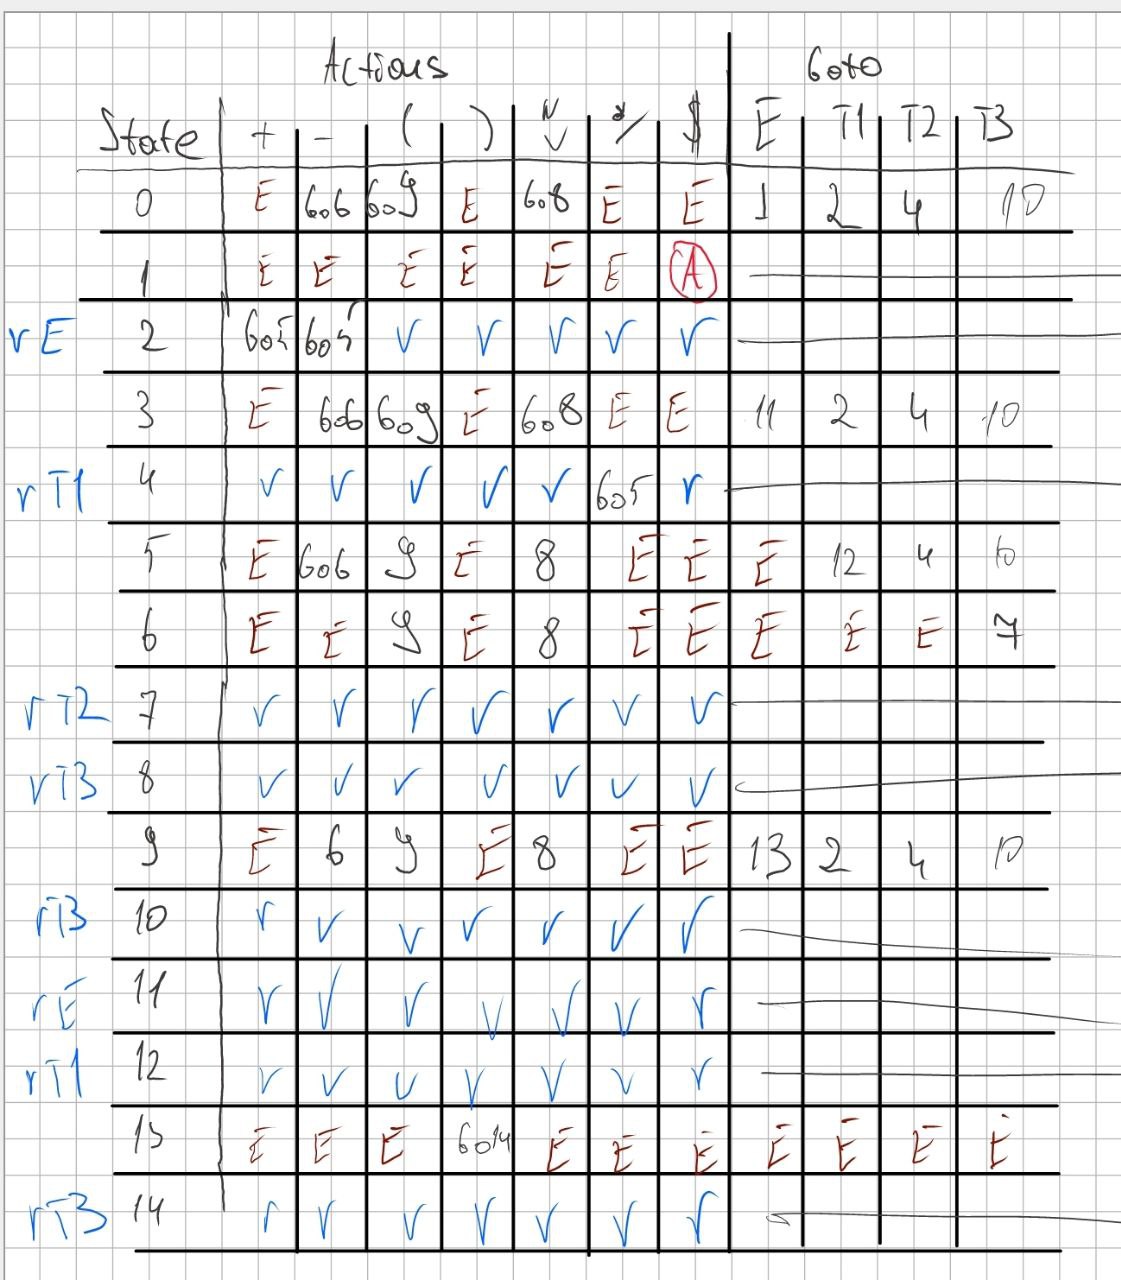 Actions Goto
State + - ( ) N V */ $ E T1 T2 T3
0 E Go6 Go9 E Go8 E E 1 2 4 10
1 E E E E E E A
rE 2 Go5 Go5 r r r r r
3 E Go6 Go9 E Go8 E E 11 2 4 10
rT1 4 r r r r r Go5 r
5 E Go6 9 E 8 E E E 12 4 10
6 E E 9 E 8 E E E E E 7
rT2 7 r r r r r r r
rT3 8 r r r r r r r
9 E 6 9 E 8 E E 13 2 4 10
rT3 10 r r r r r r r
rE 11 r r r r r r r
rT1 12 r r r r r r r
13 E E E Go14 E E E E E E E
rT3 14 r r r r r r r